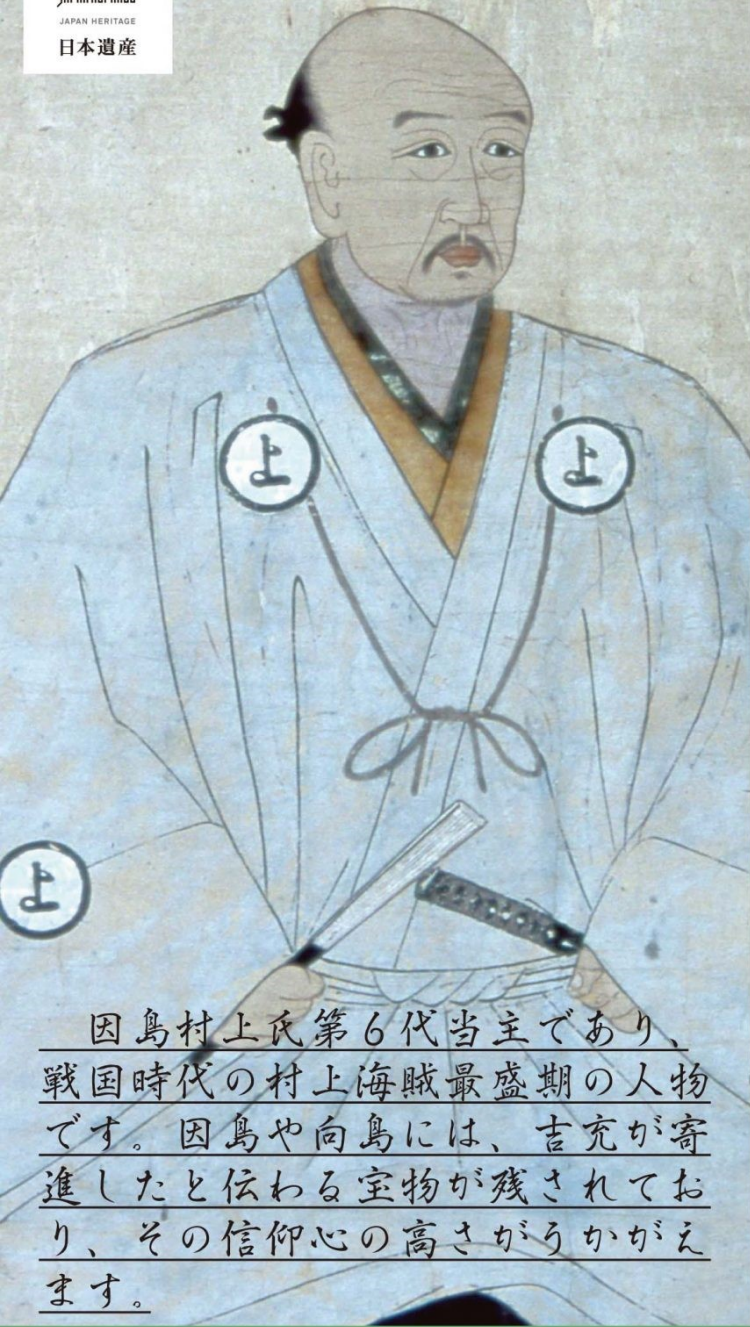 JAPAN HERITAGE
日本遺産
上
上
上
因島村上氏第６代当主であり、
戦国時代の村上海賊最盛期の人物
です。因島や向島には、吉充が寄
進したと伝わる宝物が残されてお
り、その信仰心の高さがうかがえ
ます。